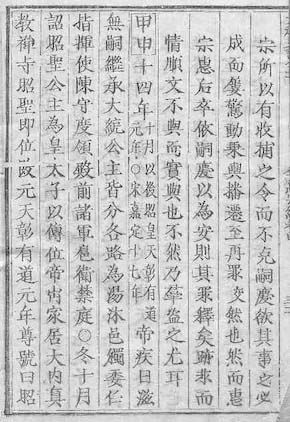 宗所以有收捕之令而不克嗣慶欲其事之必
成而驚動乘輿播遷至再罪然也而惠
宗惠后卒依嗣慶以為安則其罪釋矣跡而
情順文不與而實與也不然乃盜之尤耳
甲申十四年十月以後昭皇天彰有道元年〇宋嘉定十七年帝疾日滋
無嗣繼承大統公主皆分各路為湯沐邑獨委任
指揮使陳守度領殿前諸軍扈衛禁庭〇冬十月
詔昭聖公主為皇太子以傳位帝出家居大內真
教禪寺昭聖即位改元天彰有道元年尊號曰昭